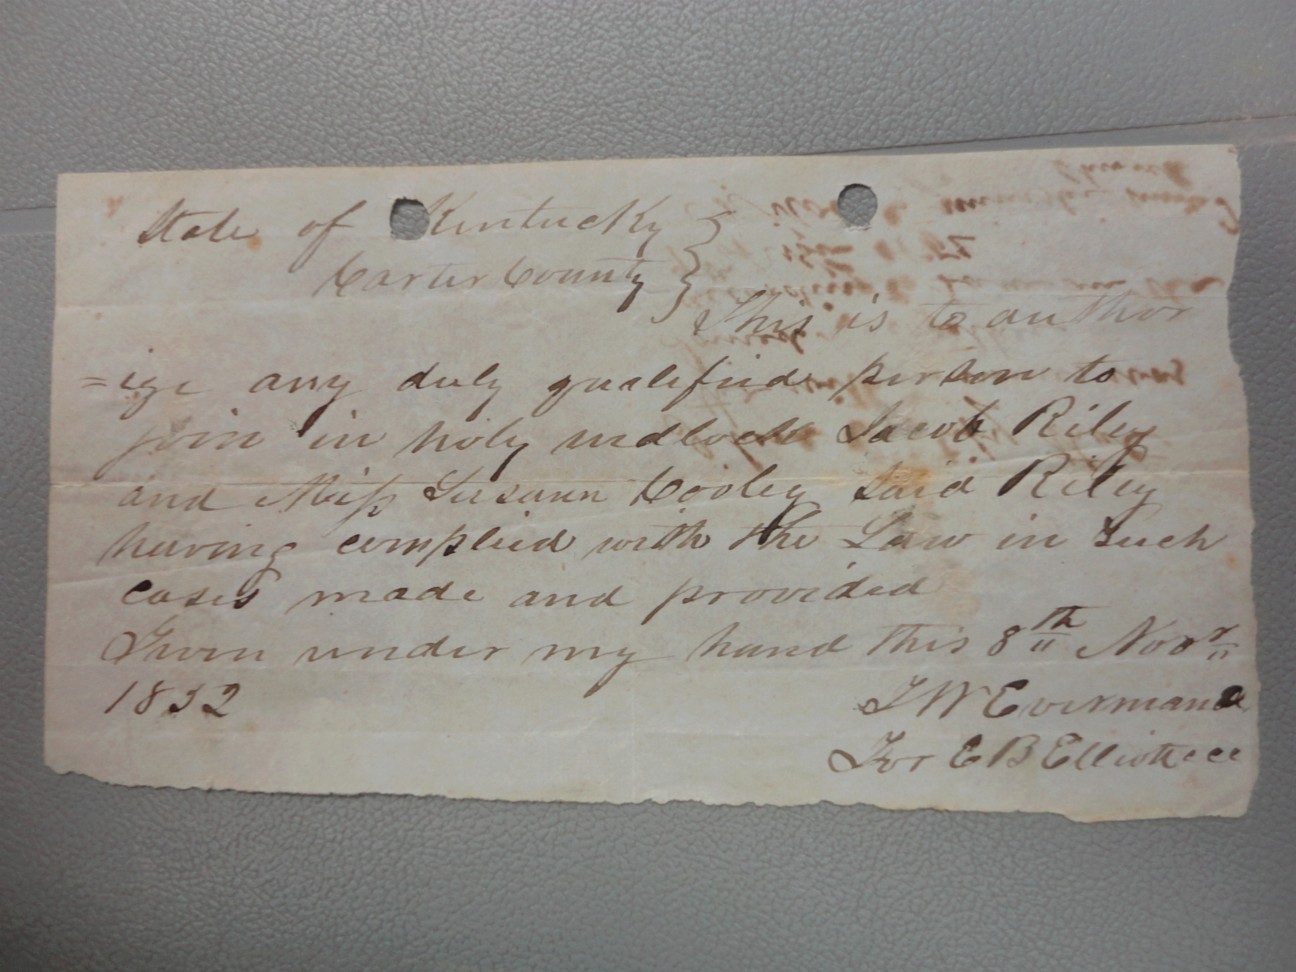 State of Kentucky }
Carter County }
This is to author
=ize any duly qualified person to
join in holy wedlock Jacob Riley
and Miss Susann Cooley said Riley
having complied with the Law in Such
cases made and provided
Given under my hand this 8th Novr
1852
J W Everman
For E B Elliott ccc